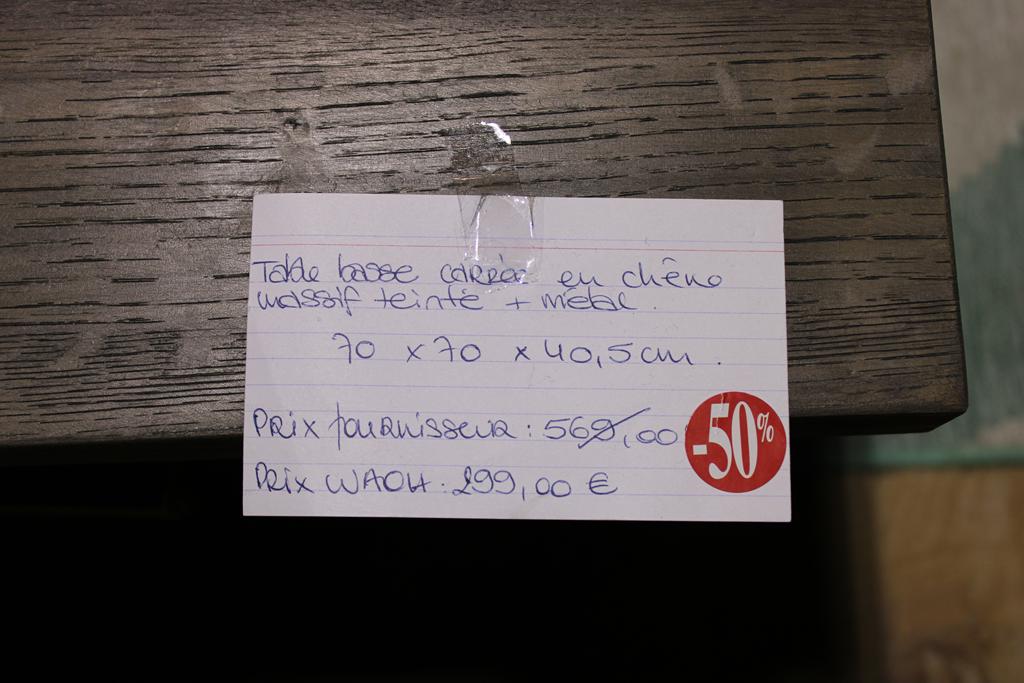 Table basse carrée en chêne
massif teinté + métal.
70 x 70 x 40,5 cm.
Prix fournisseur : 569,00
-50%
Prix WAOH : 299,00 €